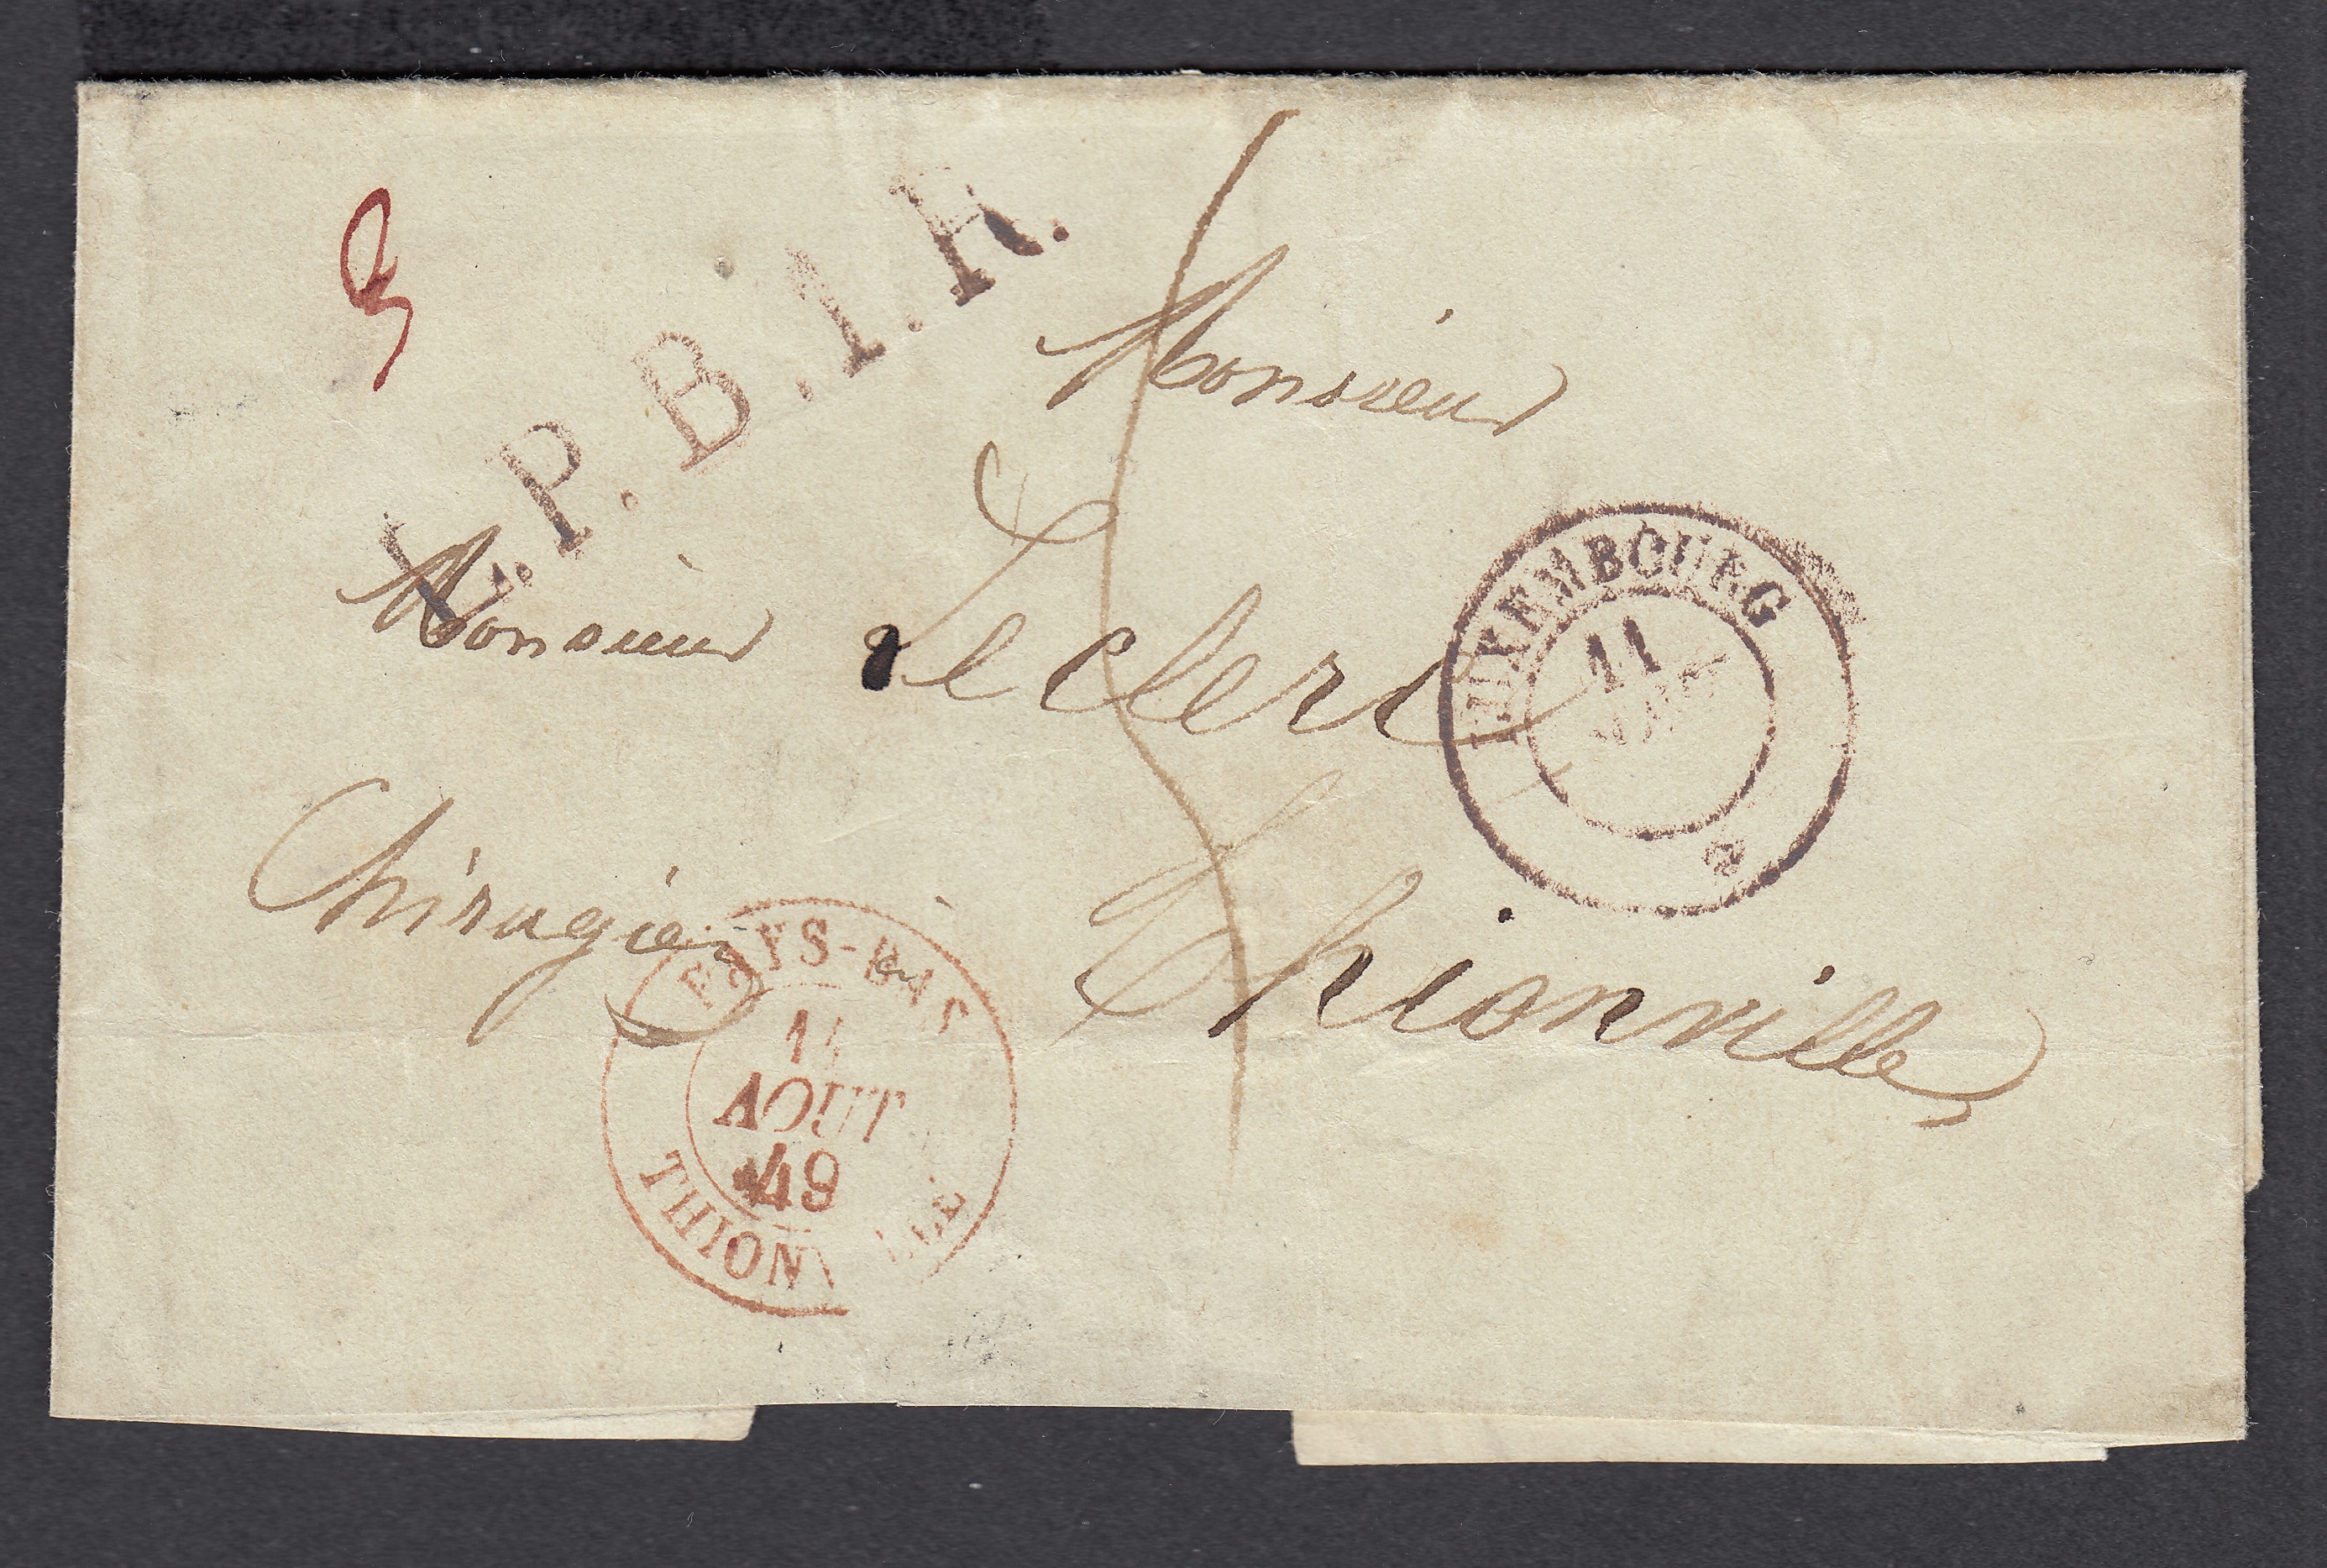 L.P.B.1.R.
Monsieur
Monsieur Leclerc
Chirugien à Thionville
LUXEMBOURG
11
PAYS-BAS
11
AOUT
49
THIONVILLE